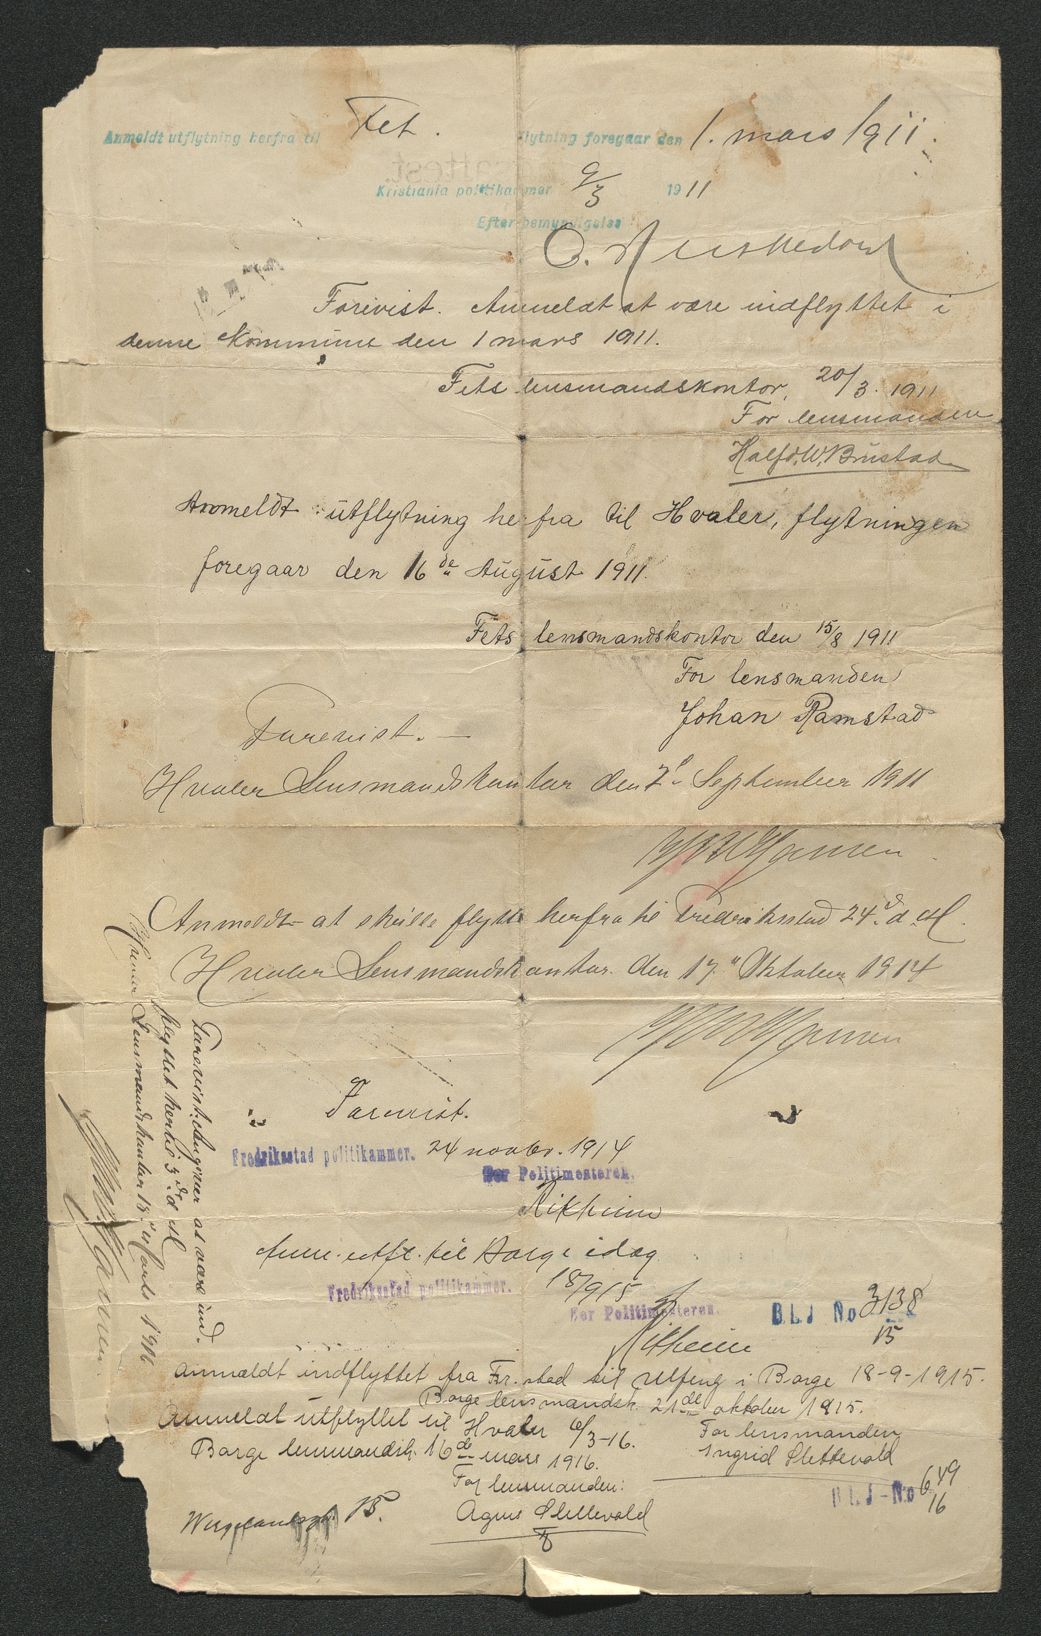 Anmeldt utflytning herfra til Fet. flytning foregaar den 1. mars 1911.
Kristiania politikammer 9/3 1911
Efter bemyndigelse
Forevist. Anmeldt at være indflyttet i
denne kommune den 1 mars 1911.
Fets lensmandskontor, 20/3. 1911
For lensmanden
Halfd. W. Brustad
Anmeldt utflytning herfra til Hvaler, flytningen
foregaar den 16de August 1911.
Fets lensmandskontor den 15/8 1911
For lensmanden
Johan Ramstad
Forevist.
Hvaler Lensmandskontor den 2. September 1911
Anmeldt at skulle flytte herfra til Fredriksstad 24. d. M.
Hvaler Lensmandskontor den 17. Oktober 1914
Forevist.
Fredriksstad politikammer. 24 novbr. 1914
For Politimesteren.
Anm. utfl. til Borge idag
Fredriksstad politikammer. 18/9 15
For Politimesteren. B.L.J No 3138
15
Anmeldt indflyttet fra Fr.stad til i Borge 18-9-1915.
Borge lensmandsk. 21de oktober 1915.
For lensmanden
Ingrid Slettevold
Anmeldt utflyttet til Hvaler 6/3-16.
Borge lensmandsk. 16de mars 1916.
For lensmanden:
Agnes Slettevold
B L J - No 649
16
15.
Forevist. at være ind-
flyttet hertil 3. d. M.
Hvaler Lensmandskontor 18. Marts 1916